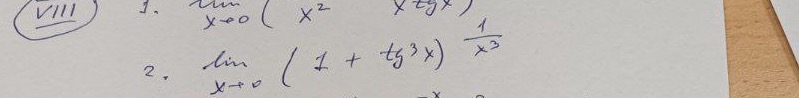 VIII 1. lim x→0 ( x² x tg x )
2. lim x→0 ( 1 + tg³x ) 1/x³